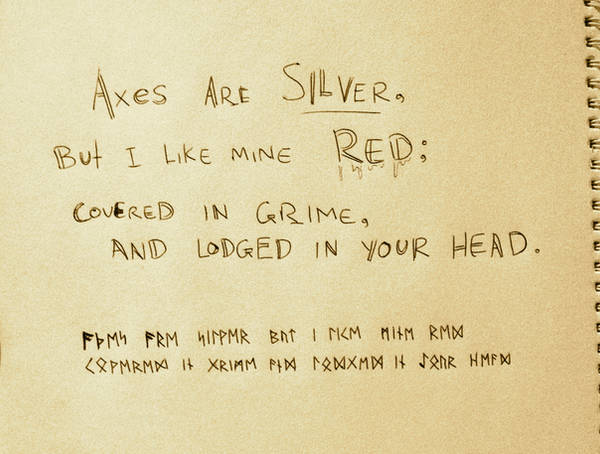 Axes ARE SILVER,
But I LIKE MINE RED;
COVERED IN GRIME,
AND LODGED IN YOUR HEAD.
ᚨᚦᛖᛋ ᚨᚱᛖ ᛋᛁᛚᚹᛖᚱ ᛒᚢᛏ ᛁ ᛚᛁᚲᛖ ᛖᛁᚾᛖ ᚱᛖᛞ
ᚲᛟᚹᛖᚱᛖᛞ ᛁᚾ ᚷᚱᛁᛖᛖ ᚨᚾᛞ ᛚᛟᛞᚷᛖᛞ ᛁᚾ ᛇᛟᚢᚱ ᚺᛖᚨᛞ